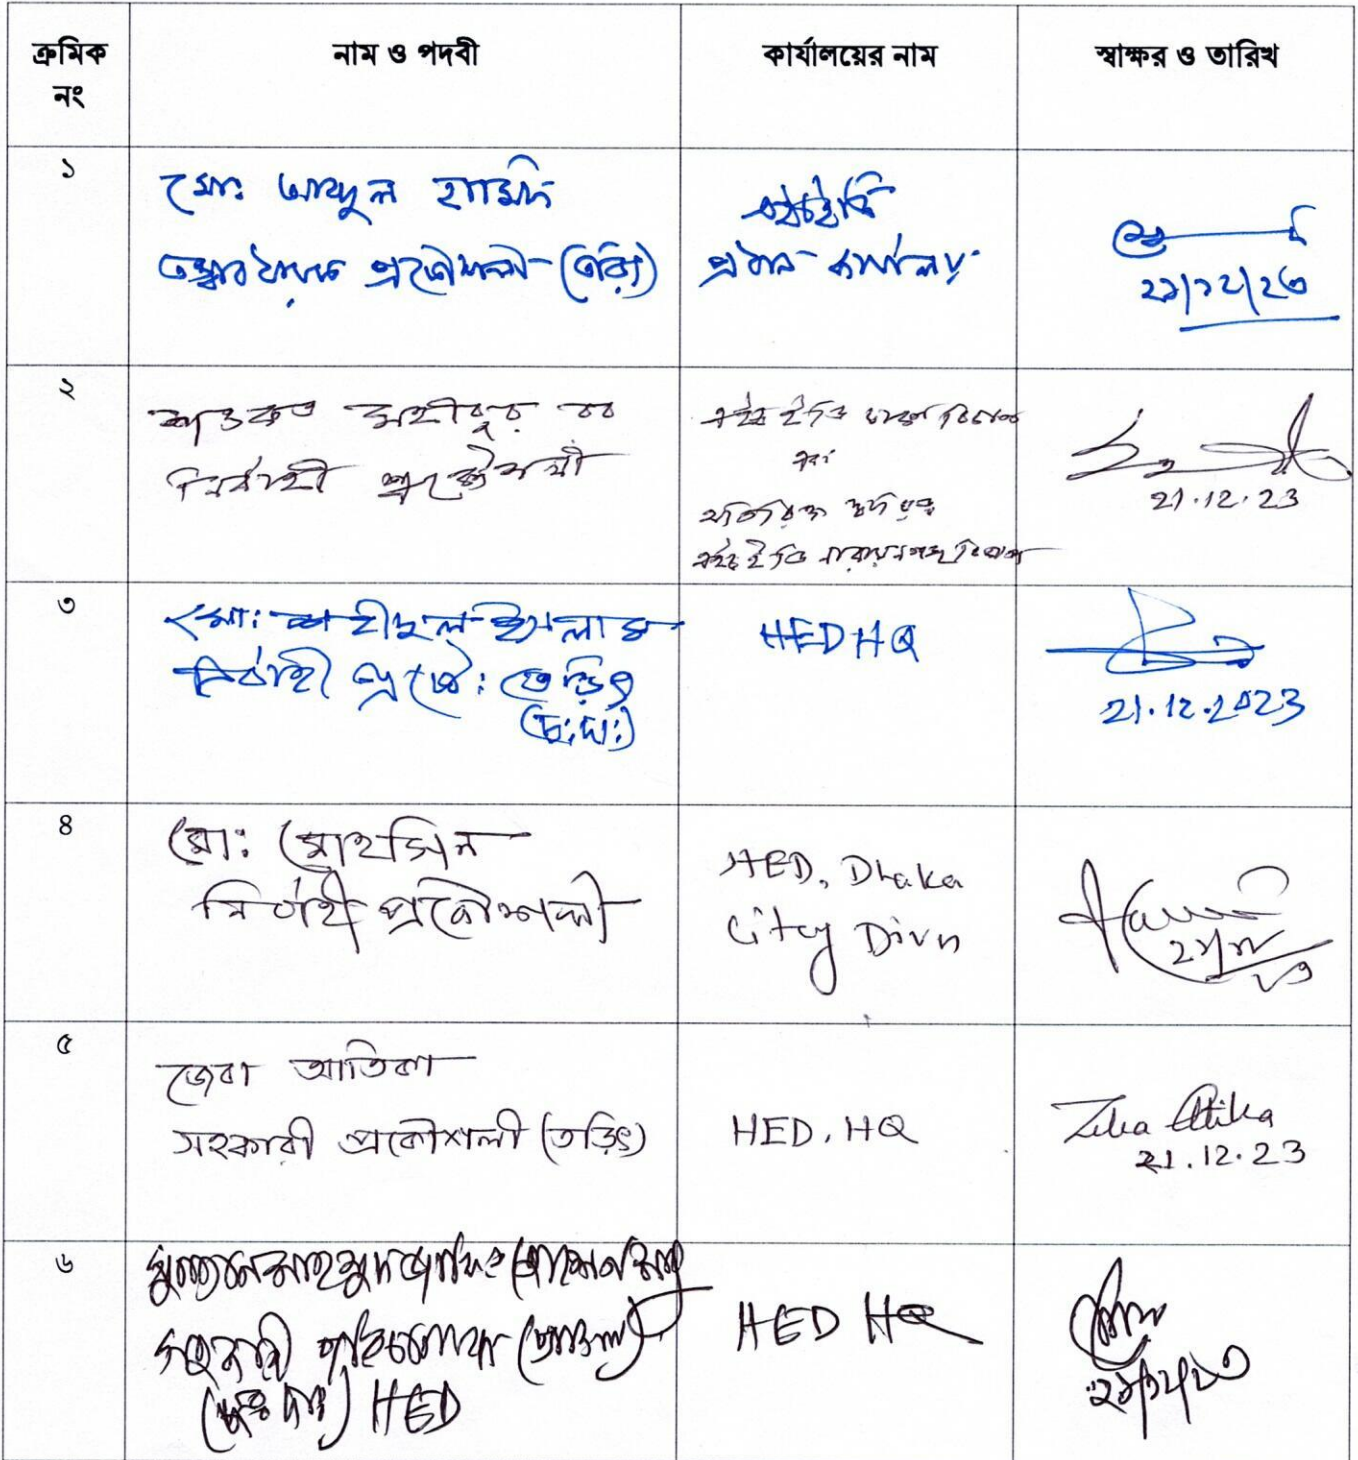 ক্রমিক নং
নাম ও পদবী
কার্যালয়ের নাম
স্বাক্ষর ও তারিখ
১
মোঃ আব্দুল হামিদ
তত্ত্বাবধায়ক প্রকৌশলী (তড়িৎ)
এইচইডি
প্রধান কার্যালয়
২১/১২/২৩
২
নির্বাহী প্রকৌশলী
এইচইডি ঢাকা বিভাগ
এবং
অতিরিক্ত দায়িত্ব
এইচইডি নারায়নগঞ্জ বিভাগ
21.12.23
৩
মোঃ শহীদুল ইসলাম
নির্বাহী প্রকৌঃ তড়িৎ
(চঃদাঃ)
HED HQ
21.12.2023
৪
মোঃ মোহসিন
নির্বাহী প্রকৌশলী
HED, Dhaka
City Divn
২১/১২
২৩
৫
জেবা আতিকা
সহকারী প্রকৌশলী (তড়িৎ)
HED, HQ
Zeba Atika
21.12.23
৬
HED
HED HQ
২১/১২/২৩